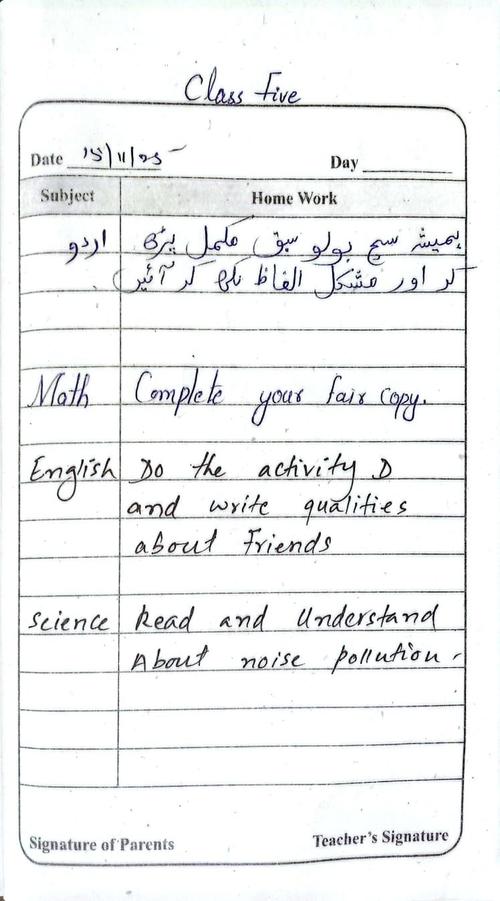 Class Five
Date 15/11/25
Day
Subject Home Work
اردو ہمیشہ سچ بولو سبق مکمل پڑھ
کر اور مشکل الفاظ لکھ کر آئیں۔
Math Complete your fair copy.
English Do the activity D
and write qualities
about Friends
Science Read and Understand
About noise pollution.
Signature of Parents Teacher's Signature